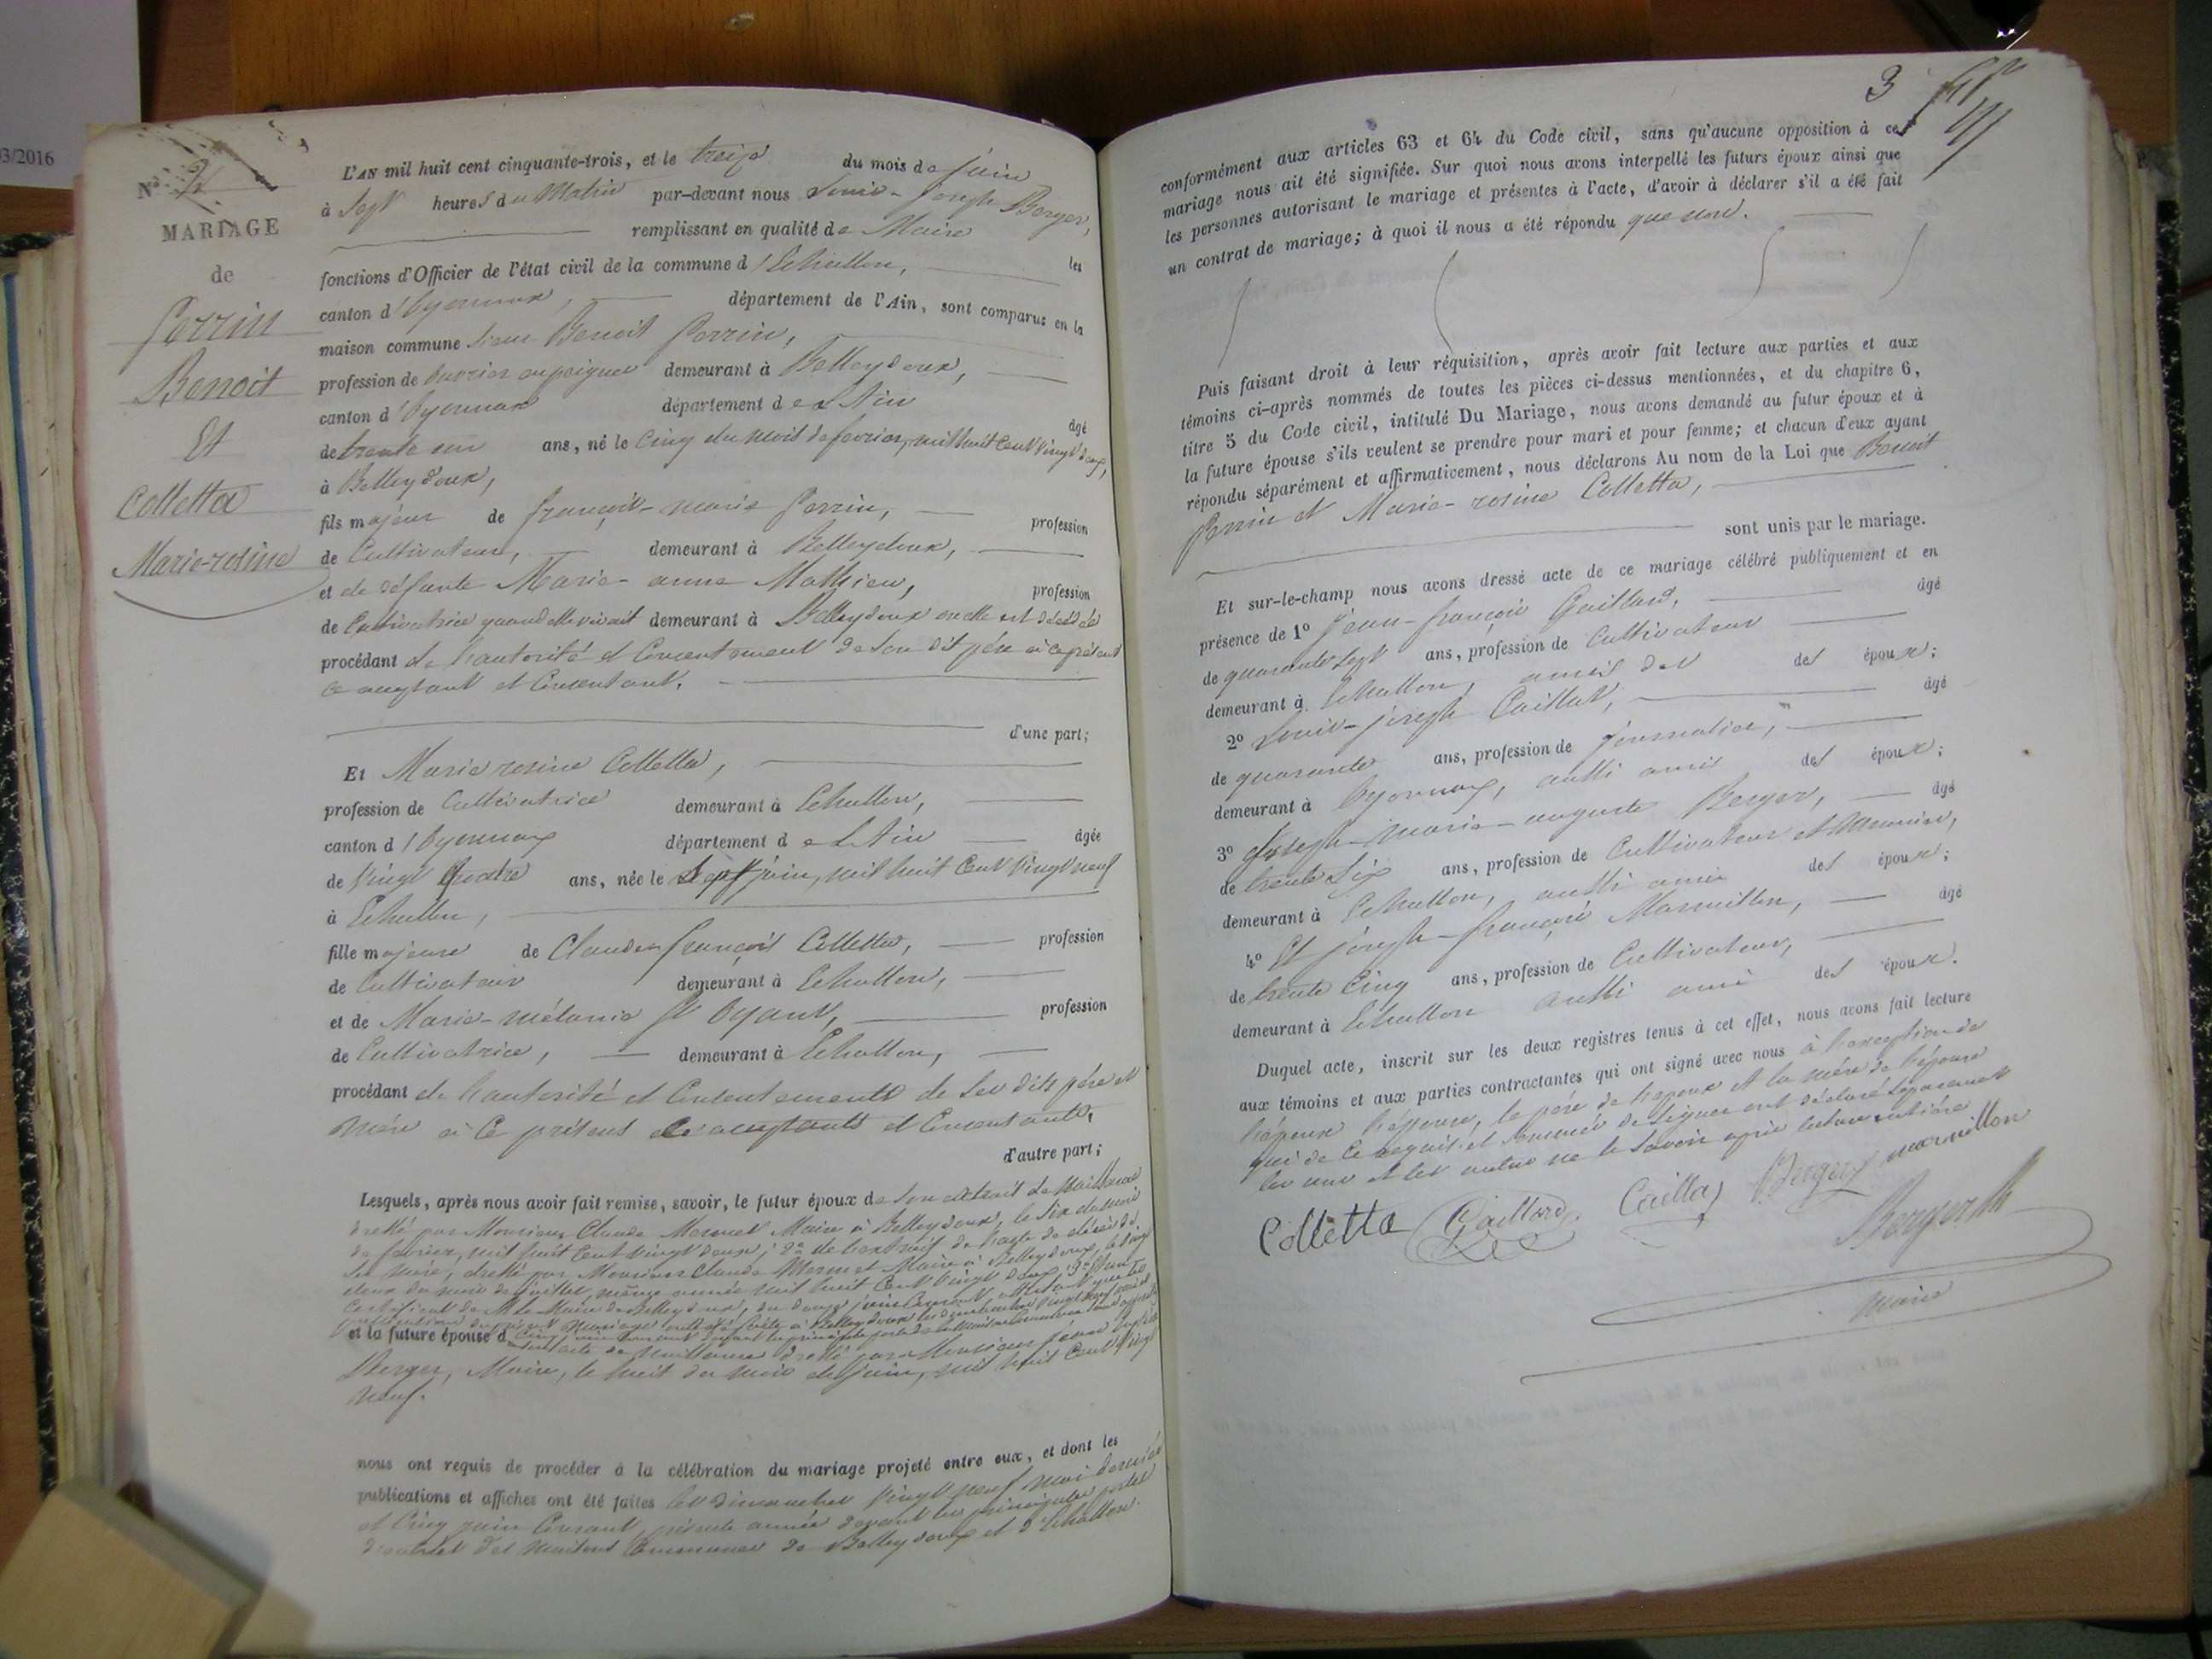 3/2016
N°
MARIAGE
de
Perrin
Benoit
Et
Colletta
Marie-rosine
L'AN mil huit cent cinquante-trois, et le treize du mois de juin
à Sept heures du Matin par-devant nous Louis-joseph Berger,
remplissant en qualité de Maire les
fonctions d'Officier de l'état civil de la commune d'Echallon,
canton d'Oyonnax, département de l'Ain, sont comparus en la
maison commune Sieur Benoit Perrin,
profession de Ouvrier en peignes demeurant à Belleydoux,
canton d'Oyonnax département de L'Ain âgé
de trente un ans, né le Cinq du mois de fevrier, mil huit Cent Vingt deux,
à Belleydoux,
fils majeur de françois-marie Perrin, profession
de Cultivateur, demeurant à Belleydoux,
et de défunte Marie-anne Mathieu, profession
de Cultivatrice quand elle vivait demeurant à Belleydoux où elle est décédée
procédant de l'autorité et Consentement de Son dit père à ce présent
ce acceptant et Consentant.
d'une part;
Et Marie rosine Colletta,
profession de Cultivatrice demeurant à Echallon,
canton d'Oyonnax département de L'Ain âgée
de Vingt Quatre ans, née le Sept juin, mil huit Cent Vingt neuf
à Echallon,
fille majeure de Claude-françois Colletta, profession
de Cultivateur demeurant à Echallon,
et de Marie-mélanie St Oyant, profession
de Cultivatrice, demeurant à Echallon,
procédant de l'autorité et Consentements de Ses dits père et
Mère à Ce présents Ce acceptants et Consentants,
d'autre part;
Lesquels, après nous avoir fait remise, savoir, le futur époux de Son extrait de Naissance
dressé par Monsieur Claude Mermet Maire à Belleydoux, le Six du mois
de fevrier, mil huit Cent Vingt deux; 2° de l'extrait de l'acte de décès de
Sa mère, dressé par Monsieur Claude Mermet Maire à Belleydoux, le Vingt
deux du mois de juillet, même année mil huit Cent Vingt deux; 3° d'un
Certificat de Mr le Maire de Belleydoux, du douze juin Courant, attestant que les
publications du présent Mariage ont été faites à Belleydoux les dimanches Vingt neuf mai et
et la future épouse d Son acte de Naissance dressé par Monsieur
Berger, Maire, le huit du mois de juin, mil huit Cent Vingt
Neuf.
nous ont requis de procéder à la célébration du mariage projeté entre eux, et dont les
publications et affiches ont été faites les dimanches Vingt neuf mai dernier
et Cinq juin Courant, présente année devant les principales portes
d'entrées des Maisons Communes de Belleydoux et d'Echallon.
3
conformément aux articles 63 et 64 du Code civil, sans qu'aucune opposition à ce
mariage nous ait été signifiée. Sur quoi nous avons interpellé les futurs époux ainsi que
les personnes autorisant le mariage et présentes à l'acte, d'avoir à déclarer s'il a été fait
un contrat de mariage; à quoi il nous a été répondu que non.
Puis faisant droit à leur réquisition, après avoir fait lecture aux parties et aux
témoins ci-après nommés de toutes les pièces ci-dessus mentionnées, et du chapitre 6,
titre 5 du Code civil, intitulé Du Mariage, nous avons demandé au futur époux et à
la future épouse s'ils veulent se prendre pour mari et pour femme; et chacun d'eux ayant
répondu séparément et affirmativement, nous déclarons Au nom de la Loi que Benoit
Perrin et Marie-rosine Colletta,
sont unis par le mariage.
Et sur-le-champ nous avons dressé acte de ce mariage célébré publiquement et en
présence de 1° jean-françois Gaillard, âgé
de quarante Sept ans, profession de Cultivateur
demeurant à Echallon, amis des des époux;
2° Louis-joseph Caillat, âgé
de quarante ans, profession de journalier,
demeurant à Oyonnax, aussi amis des époux;
3° Joseph-marie-auguste Berger, âgé
de trente Six ans, profession de Cultivateur et Meunier,
demeurant à Echallon, aussi amis des époux;
4° Et joseph-françois Marmillon, âgé
de trente Cinq ans, profession de Cultivateur,
demeurant à Echallon aussi ami des époux.
Duquel acte, inscrit sur les deux registres tenus à cet effet, nous avons fait lecture
aux témoins et aux parties contractantes qui ont signé avec nous à l'exception de
l'époux l'épouse, le père de l'époux et la mère de l'épouse
qui de Ce requis et Sommés de Signer ont déclaré Séparément
les uns et les autres ne le Savoir après lecture entière
Colletta Gaillard Caillat Berger marmillon
Berger
Maire